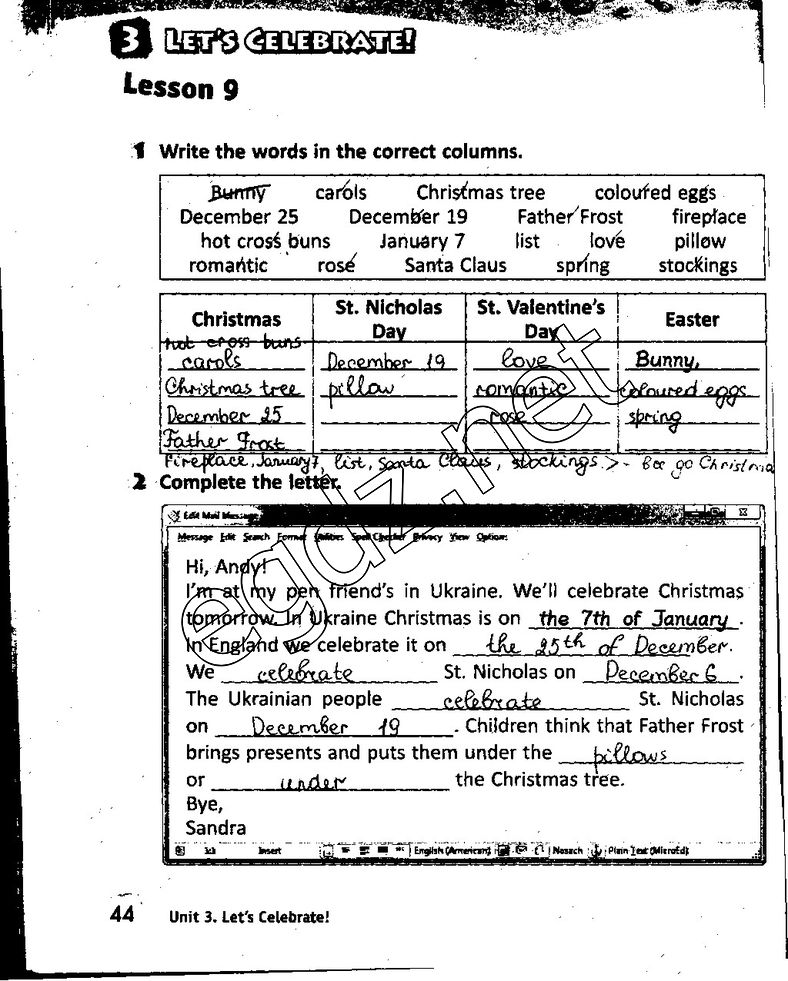 3 LET'S CELEBRATE!
Lesson 9
1 Write the words in the correct columns.
Bunny carols Christmas tree coloured eggs
December 25 December 19 Father Frost fireplace
hot cross buns January 7 list love pillow
romantic rose Santa Claus spring stockings
Christmas St. Nicholas Day St. Valentine's Day Easter
hot cross buns
carols December 19 love Bunny,
Christmas tree pillow romantic coloured eggs
December 25 rose spring
Father Frost
Fireplace, January 7, list, Santa Claus, stockings > - Все до Christma
2 Complete the letter.
Edit Mail Message
Message Edit Search Format Utilities Spell Checker Privacy View Options
Hi, Andy!
I'm at my pen friend's in Ukraine. We'll celebrate Christmas
tomorrow. In Ukraine Christmas is on the 7th of January.
In England we celebrate it on the 25th of December.
We celebrate St. Nicholas on December 6.
The Ukrainian people celebrate St. Nicholas
on December 19. Children think that Father Frost
brings presents and puts them under the pillows
or under the Christmas tree.
Bye,
Sandra
1:1 Insert English (American) Plain Text (MicroEd)
44 Unit 3. Let's Celebrate!
egdz.net